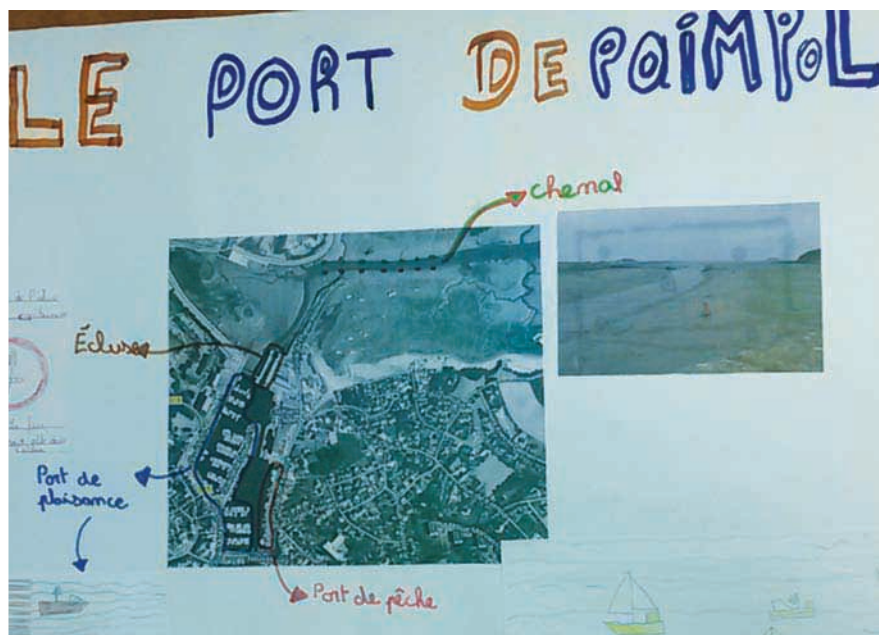 LE PORT DE PaiMPoL
chenal
Écluse
Port de
plaisance
Port de pêche